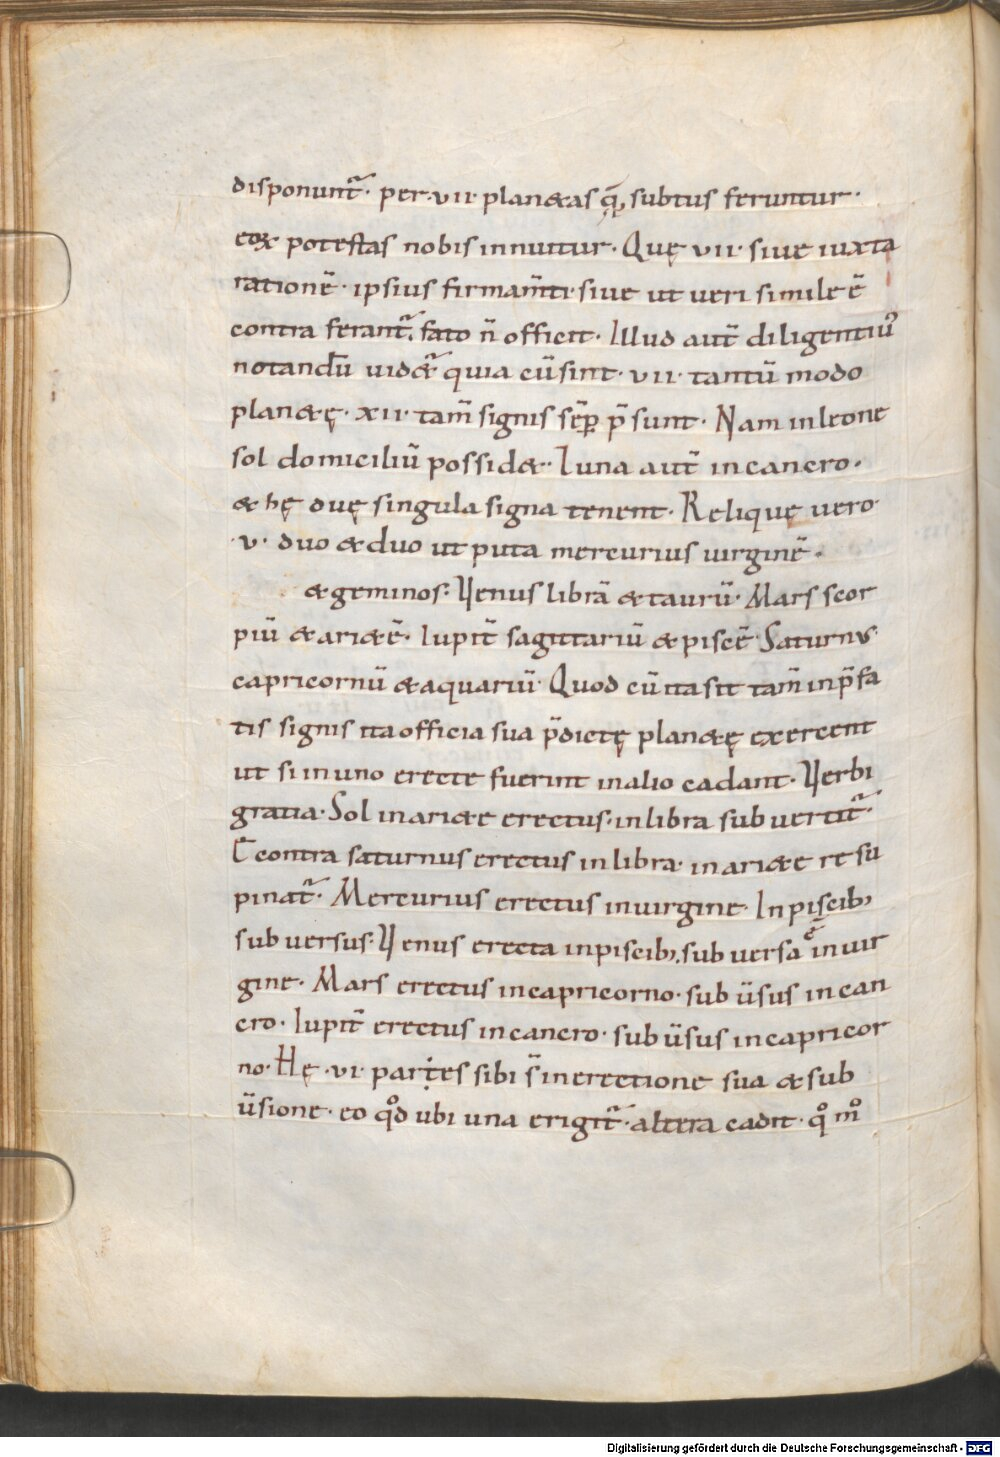 disponunt᷑· per·vii· planetas q̨̄, subtus feruntur·
eoꝝ potestas nobis innuitur· Quę vii· sive iuxta
rationē· ipsius firmam̄ti· sive ut veri simile ē
contra ferant᷑. fato n̄ officit· Illud aut̄ diligentiꝰ
notandū vidет᷑ quia cū sint· vii· tantū modo
planetę· xii· tam̄ signis sēꝑ p̄ sunt· Nam in leone
sol domiciliū possidet· Luna aut̄ in cancro·
& hę duę singula signa tenent· Relique vero
·v· duo & duo ut puta mercurius virginē·
& geminos: Venus librā & taurū· Mars scor
piū & arietē· Iupit̄ sagittariū & piscē· Saturnus
capricornū & aquariū· Quod cū ita sit tam̄ in p̄fa
tis signis ita officia sua p̄dictę planetę exercent
ut si in uno erecte fuerint in alio cadant· Verbi
gratia· Sol in ariete erectus· in libra subvertit᷑·
E contra saturnus erectus in libra· in ariete resu
pinat᷑· Mercurius erectus in virgine· In piscib;
subversus: Venus erecta in piscib;, subversa ē in vir
gine· Mars erectus in capricorno· subv̄sus in can
cro· Iupit̄ erectus in cancro· subv̄sus in capricor
no· Hę ·vi· partes sibi s̄ in erectione sua & sub
v̄sione· eo qd̊ ubi una erigit᷑· altera cadit· q̊ m̊
Digitalisierung gefördert durch die Deutsche Forschungsgemeinschaft - DFG